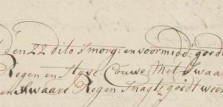 den 22 dito Smorg: en voormidd: goed
Regen en Stijve Couwe met Swaar
en Swaare Regen Snagts goedt w